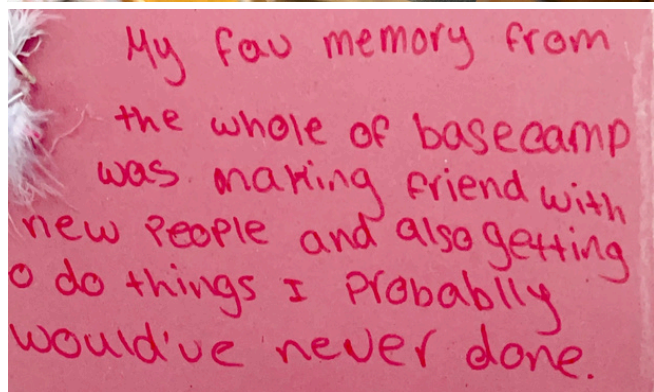 My fav memory from
the whole of basecamp
was making friend with
new people and also getting
o do things I probablly
would've never done.